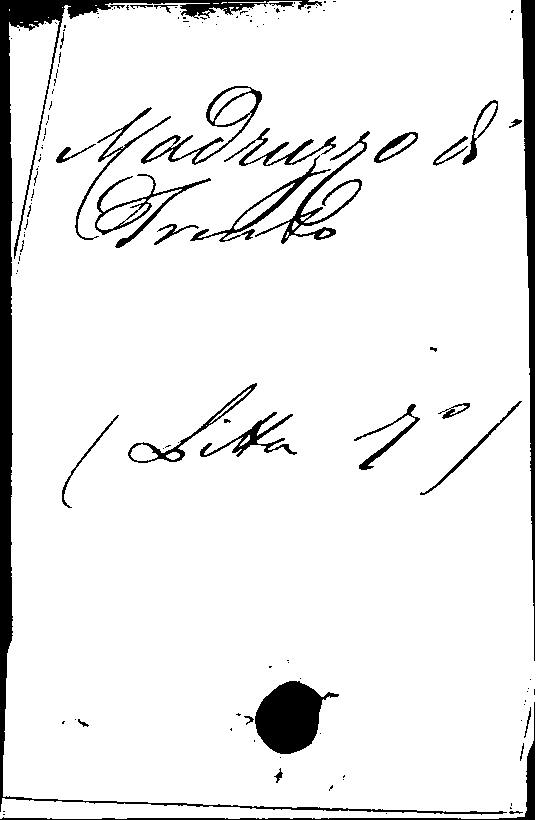 Madruzzo di
Trento
(Litta 7º)